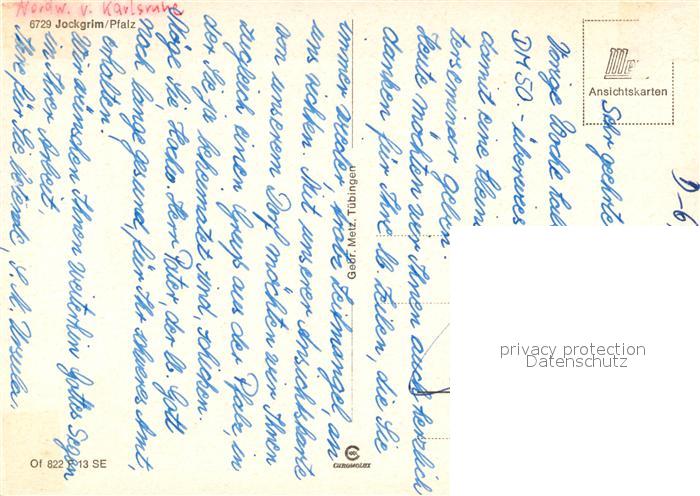 Nordw. v. Karlsruhe
6729 Jockgrim/Pfalz
Ansichtskarten
D-6
Sehr geehrte
Vorige Woche hab
DM 50.- überwies
damit eine klein
terseminar geben.
Heute möchten wir Ihnen auch herzlich
danken für Ihre lb. Zeilen, die Sie
immer wieder, trotz Zeitmangel, an
uns richten. Mit unserer Ansichtskarte
von unserem Dorf möchten wir Ihnen
zugleich einen Gruß aus der Pfalz, in
der Sie ja beheimatet sind, schicken.
Möge Sie, Hochw. Herr Pater, der lb. Gott
noch lange gesund, für Ihr schweres Amt,
erhalten.
Wir wünschen Ihnen weiterhin Gottes Segen
in Ihrer Arbeit,
Ihre für Sie betende, S. M. Ursula.
Gebr. Metz, Tübingen
Of 822 F 13 SE
CHROMOLUX
privacy protection
Datenschutz